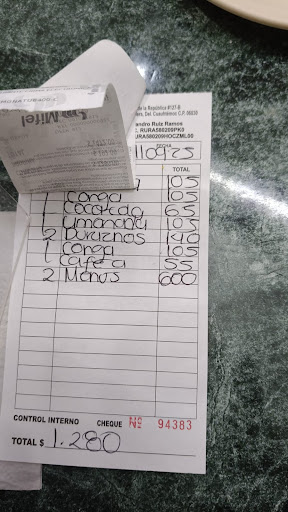 de la República #127-B
Del. Cuauhtémoc C.P. 06030
andro Ruiz Ramos
RURA580209PK0
RURA580209HOCZML00
Mifel
FECHA
110925
TOTAL
105
1 Conga 105
1 Cocoteda 65
1 Limonana 105
2 Duraznos 140
1 Conga 105
1 Cafe a 55
2 Menus 600
CONTROL INTERNO CHEQUE Nº 94383
TOTAL $ 1.280